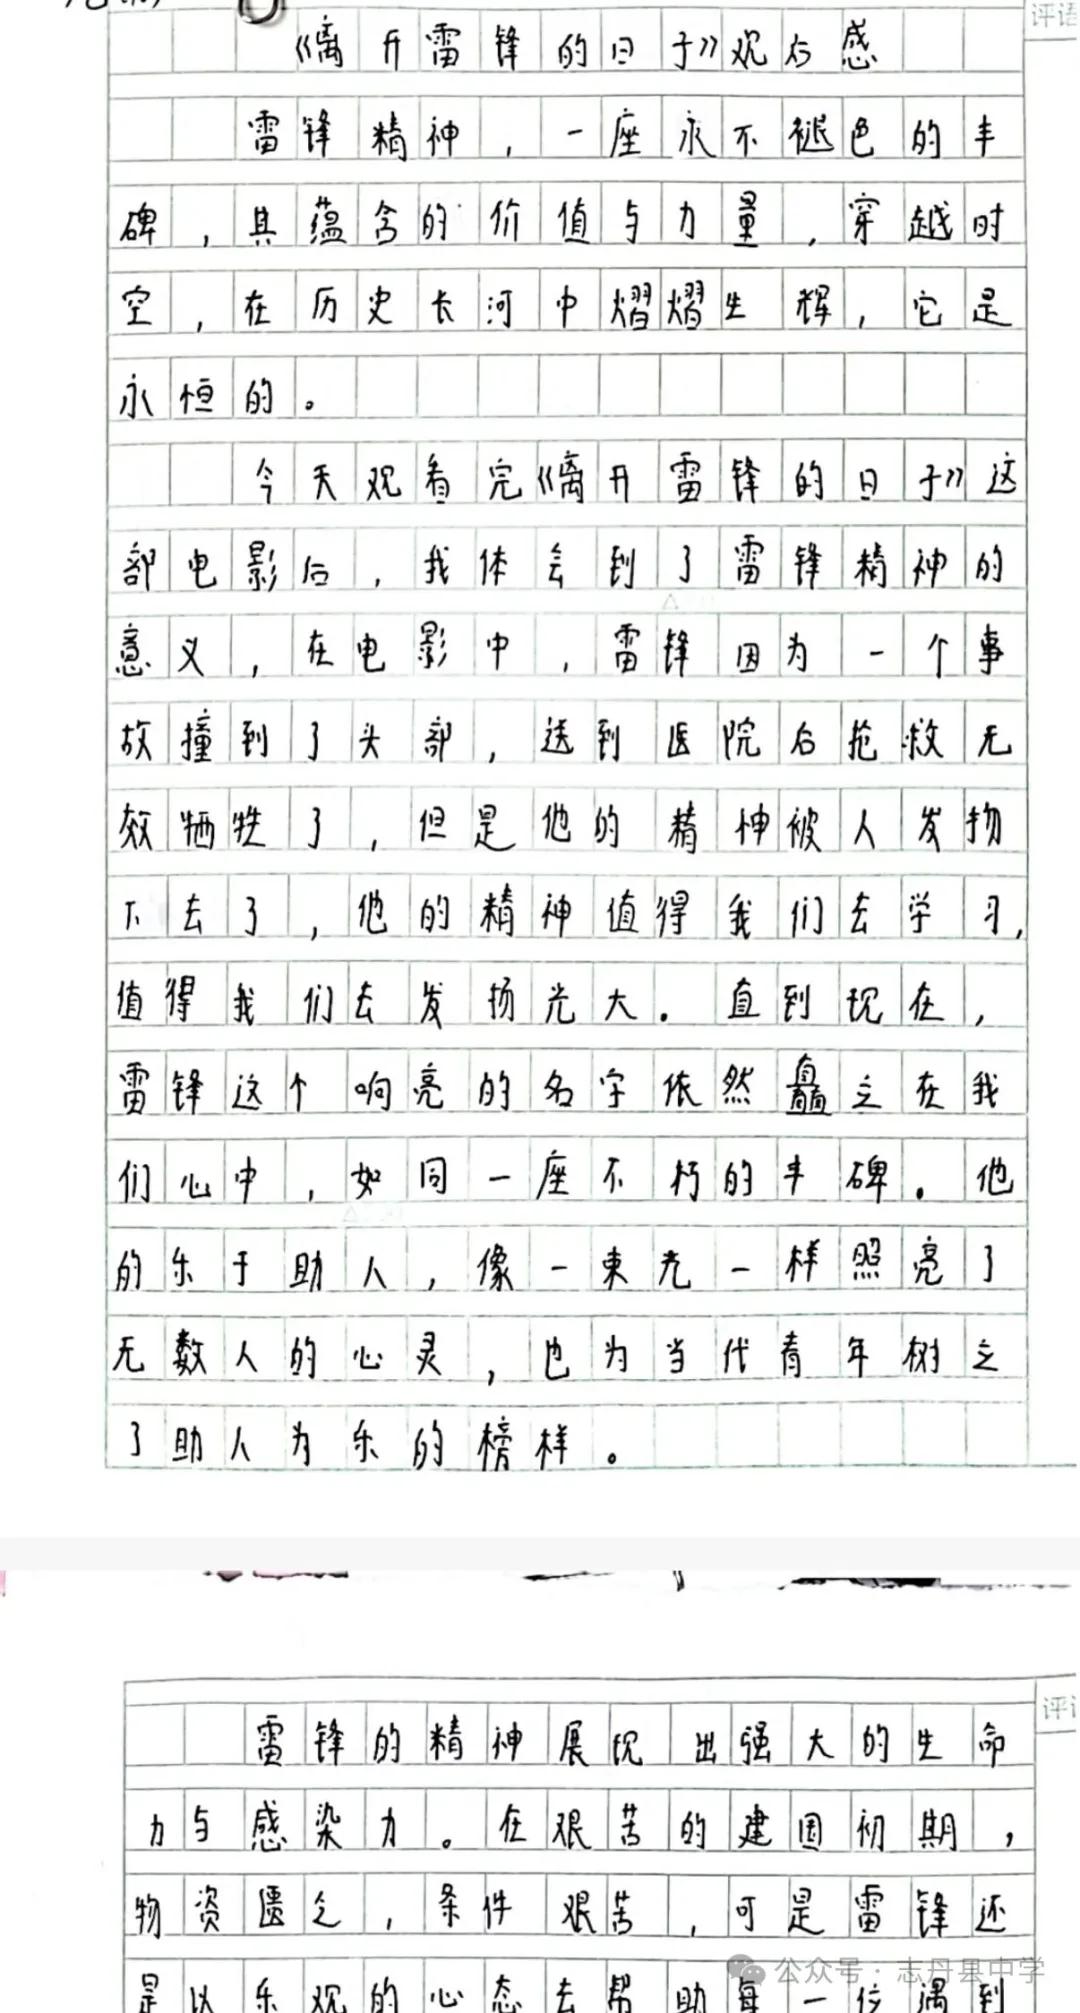 评语
《离开雷锋的日子》观后感
雷锋精神，一座永不褪色的丰
碑，其蕴含的价值与力量，穿越时
空，在历史长河中熠熠生辉，它是
永恒的。
今天观看完《离开雷锋的日子》这
部电影后，我体会到了雷锋精神的
意义，在电影中，雷锋因为一个事
故撞到了头部，送到医院后抢救无
效牺牲了，但是他的精神被人发扬
下去了，他的精神值得我们去学习，
值得我们去发扬光大。直到现在，
雷锋这个响亮的名字依然矗立在我
们心中，如同一座不朽的丰碑。他
的乐于助人，像一束光一样照亮了
无数人的心灵，也为当代青年树立
了助人为乐的榜样。
评语
雷锋的精神展现出强大的生命
力与感染力。在艰苦的建国初期，
物资匮乏，条件艰苦，可是雷锋还
是以乐观的心态去帮助每一位遇到
公众号：志丹县中学